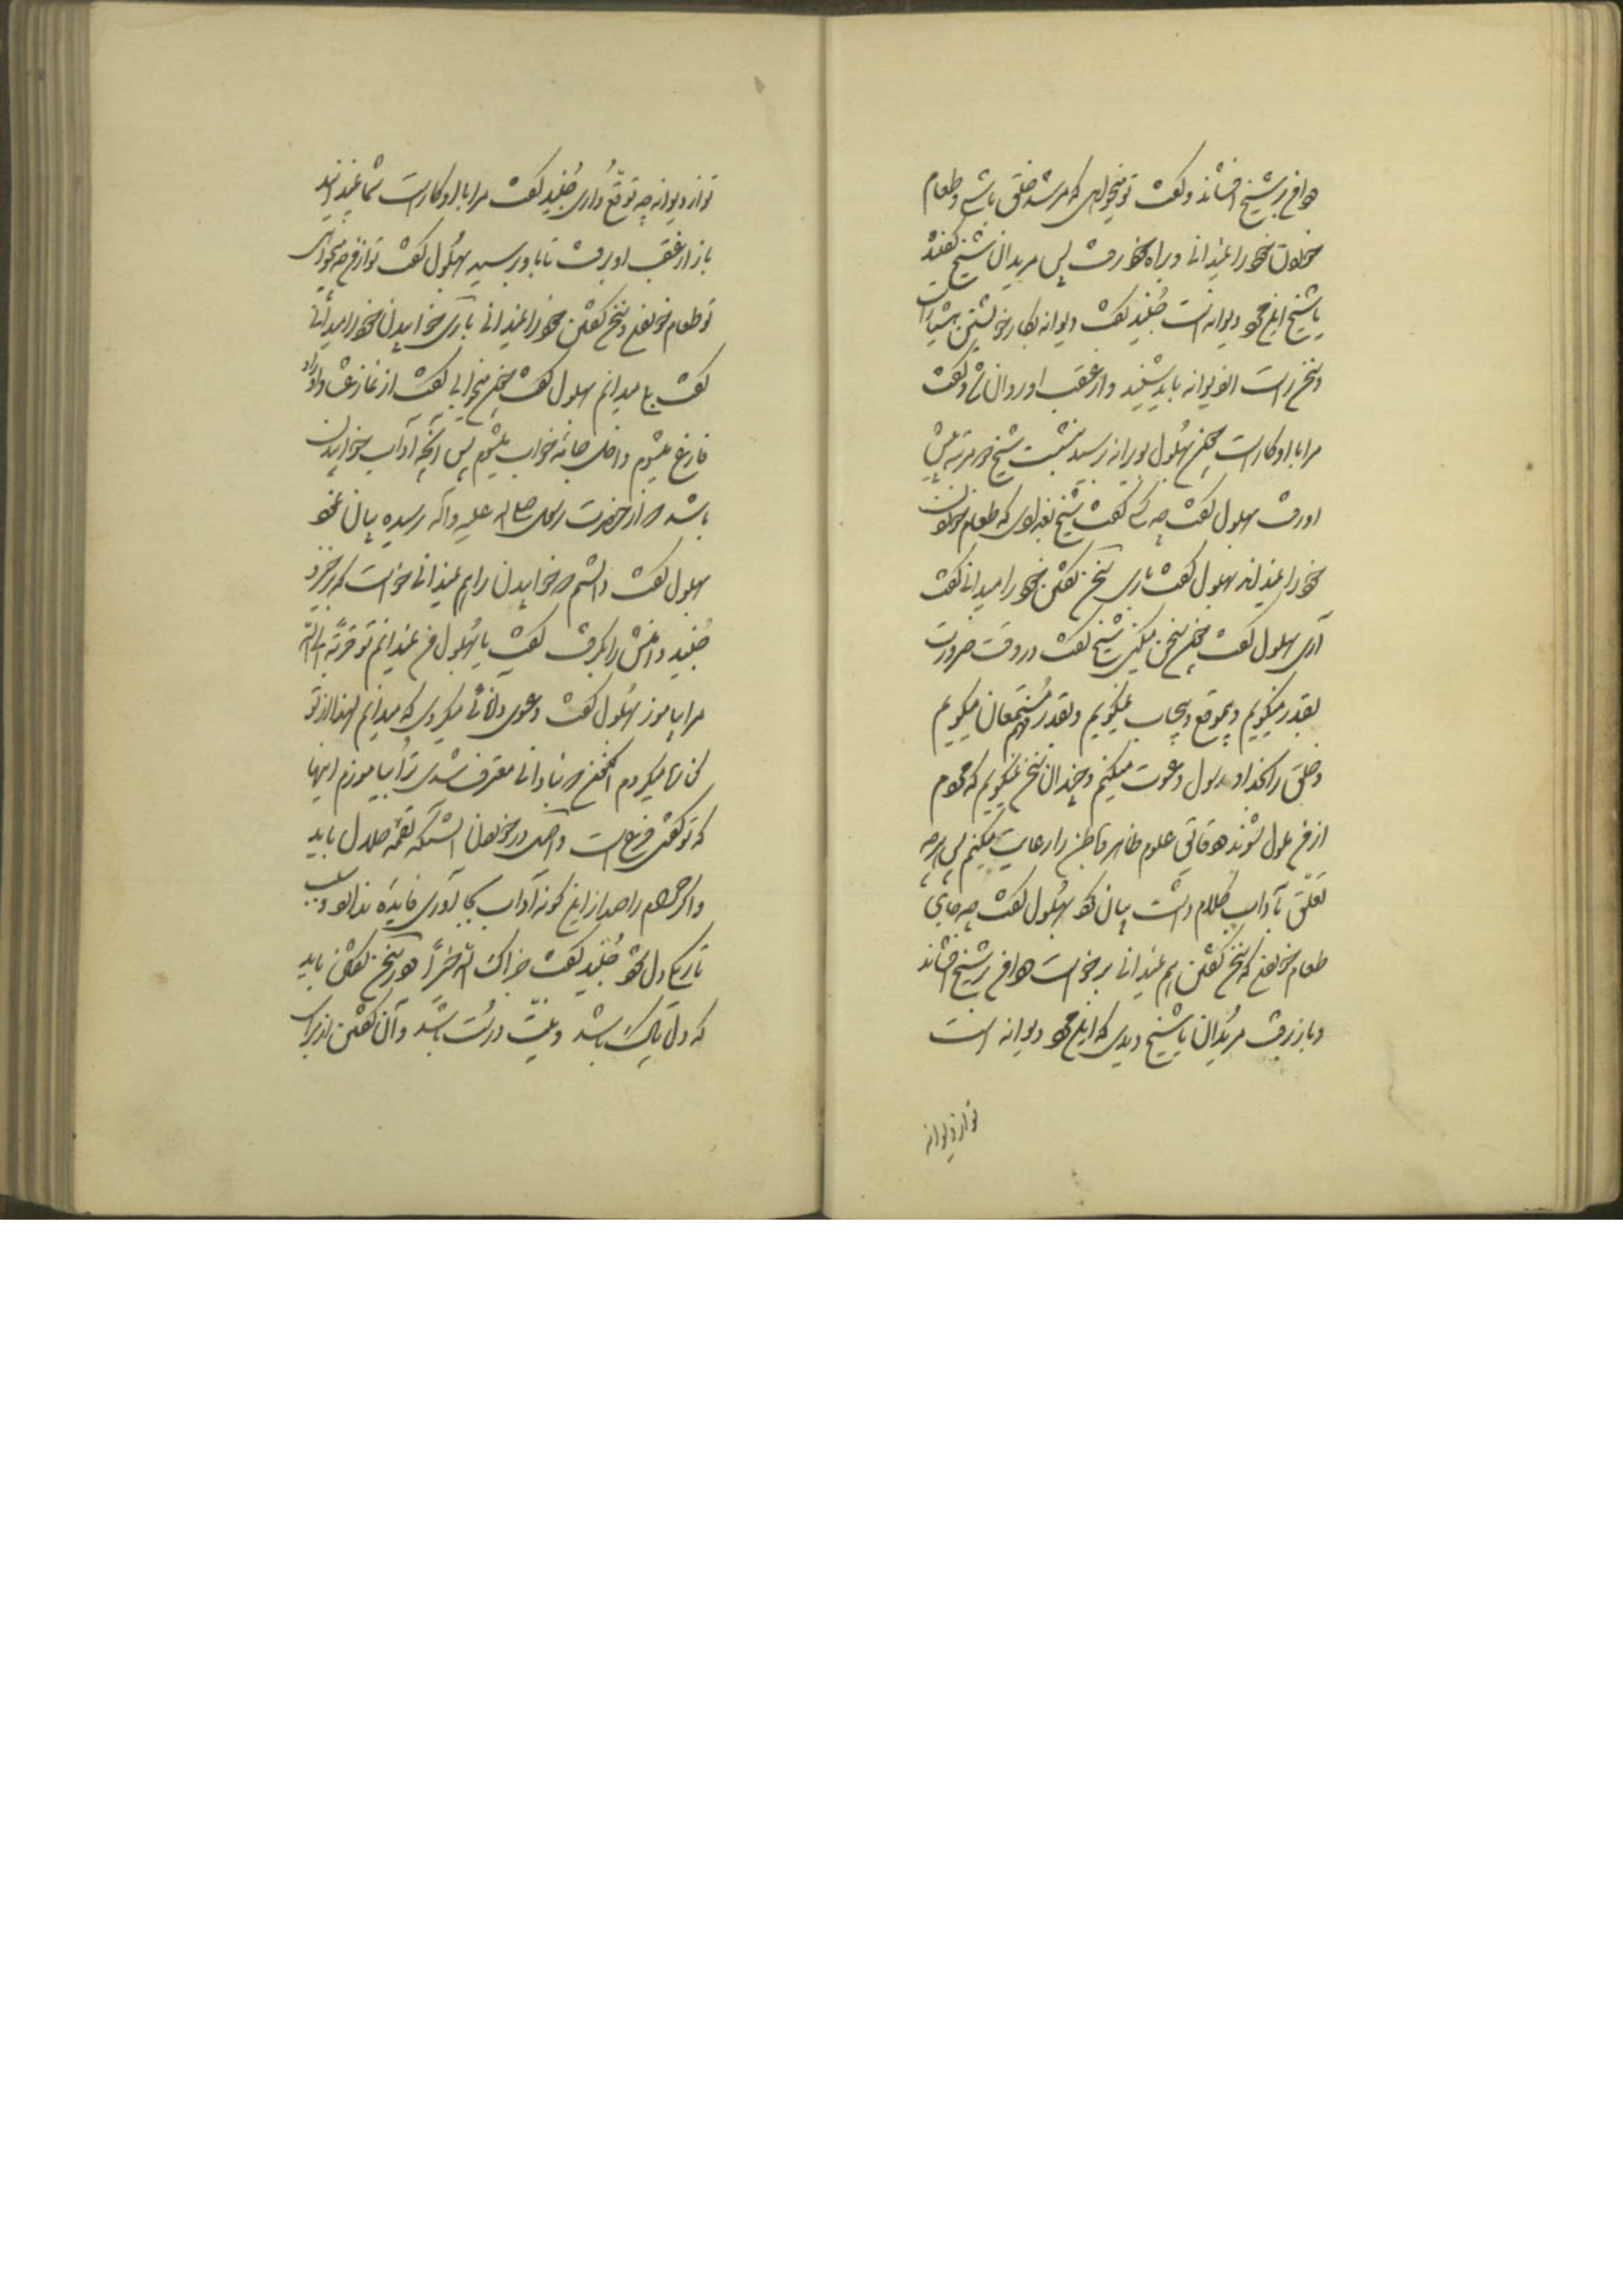 دامن بر شیخ افشاند و گفت تو میخواهی که مرشد خلق باشی و طعام
خوردن خود را نمیدانی و براه خود رفت پس مریدان شیخ گفتند
یا شیخ این مرد دیوانه است جُنَید گفت دیوانه بکار خویشتن هشیار است
و سخن راست از دیوانه باید شنید و از عقب او روان شد و گفت
مرا با او کار است چون بُهلول بویرانه رسید بنشست شیخ در مرتبه پیش
او رفت بهلول گفت چه کسی گفت شیخ بغدادی که طعام خوردن
خود را نمیداند بهلول گفت باری سخن گفتن خود را میدانی گفت
آری بهلول گفت چون سخن میکنی شیخ گفت در وقت ضرورت
بقدر میگویم و بموقع و بیجاب نمیگویم و بقدر فهم مُستَمِعان میگویم
و خلق را بخدا و رسول دعوت میکنم و چندان سخن نمیگویم که مردم
از من ملول شوند و دقایق علوم ظاهر و باطن را رعایت میکنم پس هرچه
تعلّق بآداب کلام داشت بیان کرد بُهلول گفت چه جای
طعام خوردن که سخن گفتن هم نمیدانی برخواست و دامن بر شیخ افشاند
و باز رفت مریدان یا شیخ دیدی که این مرد دیوانه است
تو از دیوانه
تو از دیوانه چه توقّع داری جُنَید گفت مرا با او کار است شما نمیدانید
باز از عَقب او رفت تا باو رسید بهُلول گفت تو از من چه میخواهی
تو طعام خوردن و سخن گفتن خود را نمیدانی باری خوابیدن خود را میدانی
گفت بلی میدانم بهلول گفت چون میخوابی گفت از نماز عشا و اوراد
فارغ میشوم داخل جامه خواب میشوم پس آنچه آداب خوابیدن
باشد و از حضرت رسول صلی الله علیه و آله رسیده بیان نمود
بهلول گفت دانستم و خوابیدن را هم نمیدانی خواست که برخیزد
جُنَید دامنش را بگرفت گفت یا بُهلول من نمیدانم تو قربة الی الله
مرا بیاموز بهُلول گفت دعوی دانائی میکردی که میدانم لهذا از تو
کناره میکردم اکنون و بنادانی معترف شدی ترا بیاموزم اینها
که تو گفتی فرع است و اصل در خوردن آنستکه لقمه حلال باید
و اگر حرام را صد از این گونه آداب بجا آوری فایده ندارد و سبب
تاریکی دل شود جُنَید گفت جزاک الله خیراً و در سخن گفتن باید
که دل پاک باشد و نیّت درست باشد و آن گفتن از برای